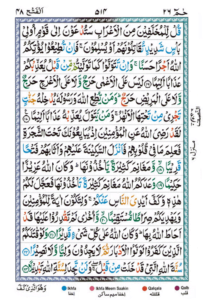 الفتح ٤٨
٥١٣
حٰمٓ ٢٦
قُلْ لِّلْمُخَلَّفِيْنَ مِنَ الْاَعْرَابِ سَتُدْعَوْنَ اِلٰى قَوْمٍ اُولِيْ
بَاْسٍ شَدِيْدٍ تُقَاتِلُوْنَهُمْ اَوْ يُسْلِمُوْنَ ۚ فَاِنْ تُطِيْعُوْا يُؤْتِكُمُ
اللّٰهُ اَجْرًا حَسَنًا ۚ وَاِنْ تَتَوَلَّوْا كَمَا تَوَلَّيْتُمْ مِّنْ قَبْلُ يُعَذِّبْكُمْ
عَذَابًا اَلِيْمًا لَيْسَ عَلَى الْاَعْمٰى حَرَجٌ وَّلَا عَلَى الْاَعْرَجِ حَرَجٌ
وَّلَا عَلَى الْمَرِيْضِ حَرَجٌ ؕ وَمَنْ يُّطِعِ اللّٰهَ وَرَسُوْلَهٗ يُدْخِلْهُ جَنّٰتٍ
تَجْرِيْ مِنْ تَحْتِهَا الْاَنْهٰرُ ۚ وَمَنْ يَّتَوَلَّ يُعَذِّبْهُ عَذَابًا اَلِيْمًا لَقَدْ
رَضِيَ اللّٰهُ عَنِ الْمُؤْمِنِيْنَ اِذْ يُبَايِعُوْنَكَ تَحْتَ الشَّجَرَةِ
فَعَلِمَ مَا فِيْ قُلُوْبِهِمْ فَاَنْزَلَ السَّكِيْنَةَ عَلَيْهِمْ وَاَثَابَهُمْ فَتْحًا
قَرِيْبًا وَّمَغَانِمَ كَثِيْرَةً يَّاْخُذُوْنَهَا ؕ وَكَانَ اللّٰهُ عَزِيْزًا
حَكِيْمًا وَعَدَكُمُ اللّٰهُ مَغَانِمَ كَثِيْرَةً تَاْخُذُوْنَهَا فَعَجَّلَ لَكُمْ
هٰذِهٖ وَكَفَّ اَيْدِيَ النَّاسِ عَنْكُمْ ۚ وَلِتَكُوْنَ اٰيَةً لِّلْمُؤْمِنِيْنَ
وَيَهْدِيَكُمْ صِرَاطًا مُّسْتَقِيْمًا وَّاُخْرٰى لَمْ تَقْدِرُوْا عَلَيْهَا قَدْ
اَحَاطَ اللّٰهُ بِهَا ؕ وَكَانَ اللّٰهُ عَلٰى كُلِّ شَيْءٍ قَدِيْرًا وَلَوْ قَاتَلَكُمُ
الَّذِيْنَ كَفَرُوْا لَوَلَّوُا الْاَدْبَارَ ثُمَّ لَا يَجِدُوْنَ وَلِيًّا وَّلَا نَصِيْرًا
سُنَّةَ اللّٰهِ الَّتِيْ قَدْ خَلَتْ مِنْ قَبْلُ ۚ وَلَنْ تَجِدَ لِسُنَّةِ اللّٰهِ تَبْدِيْلًا
Ikhfa Meem Saakin
Qalqala